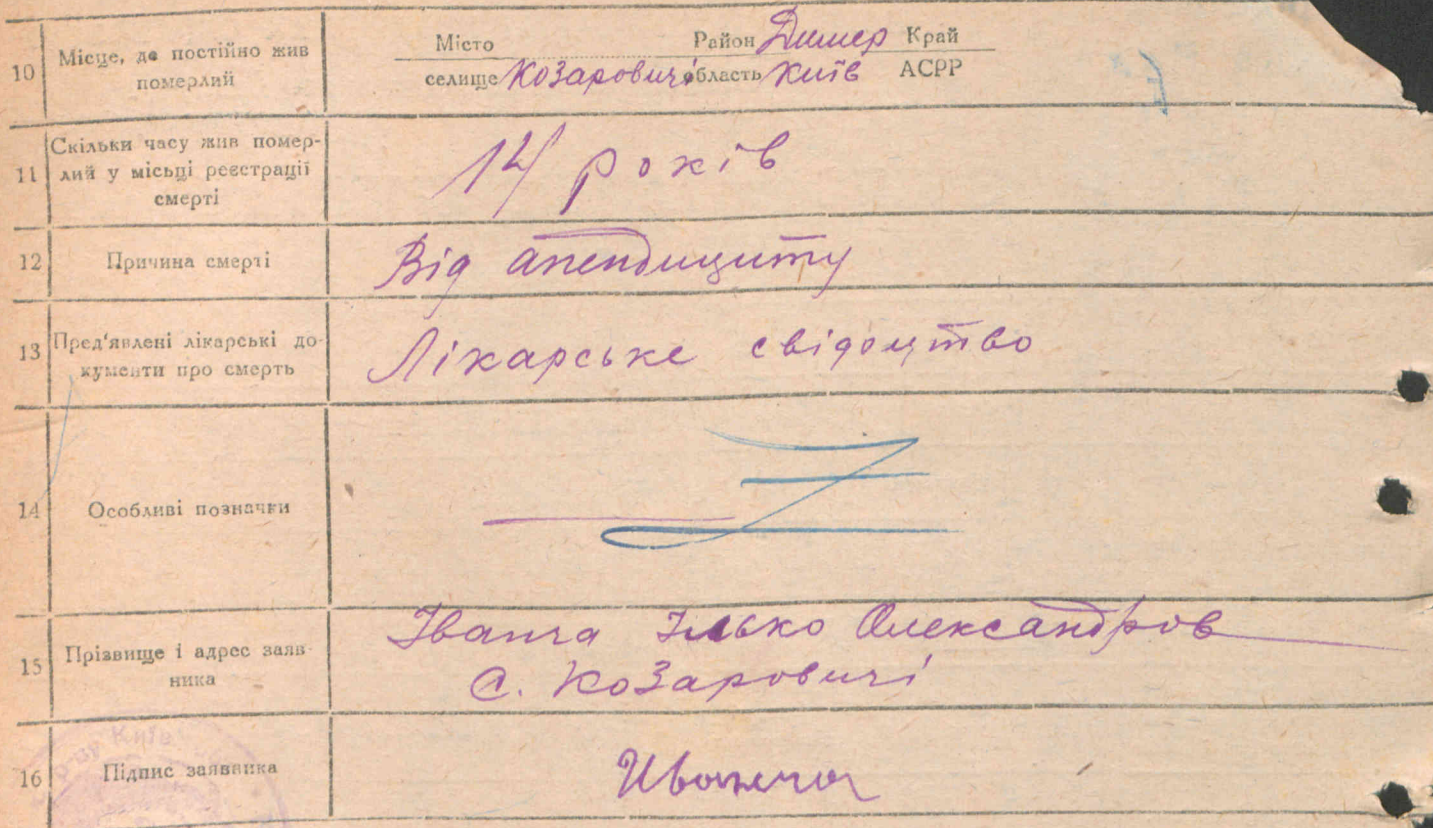 10 Місце, де постійно жив померлий
Місто Район Димер Край
селище Козаровичі область Київ АСРР
11 Скільки часу жив помер-
лий у місьці реєстрації
смерті
14 років
12 Причина смерті Від апендициту
13 Пред'явлені лікарські до-
кументи про смерть
Лікарське свідоцтво
14 Особливі позначки
15 Прізвище і адрес заяв-
ника
Ілько Олександров
С. Козаровичі
16 Підпис заявника